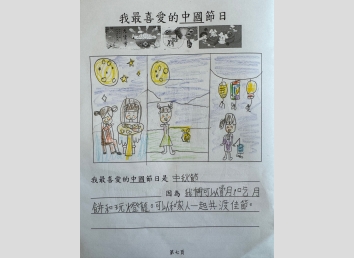 我最喜愛的中國節日
我最喜愛的中國節日是 中秋節
因為 我們可以賞月和吃月
餅和玩燈籠。可以和家人一起共渡佳節。
第七頁